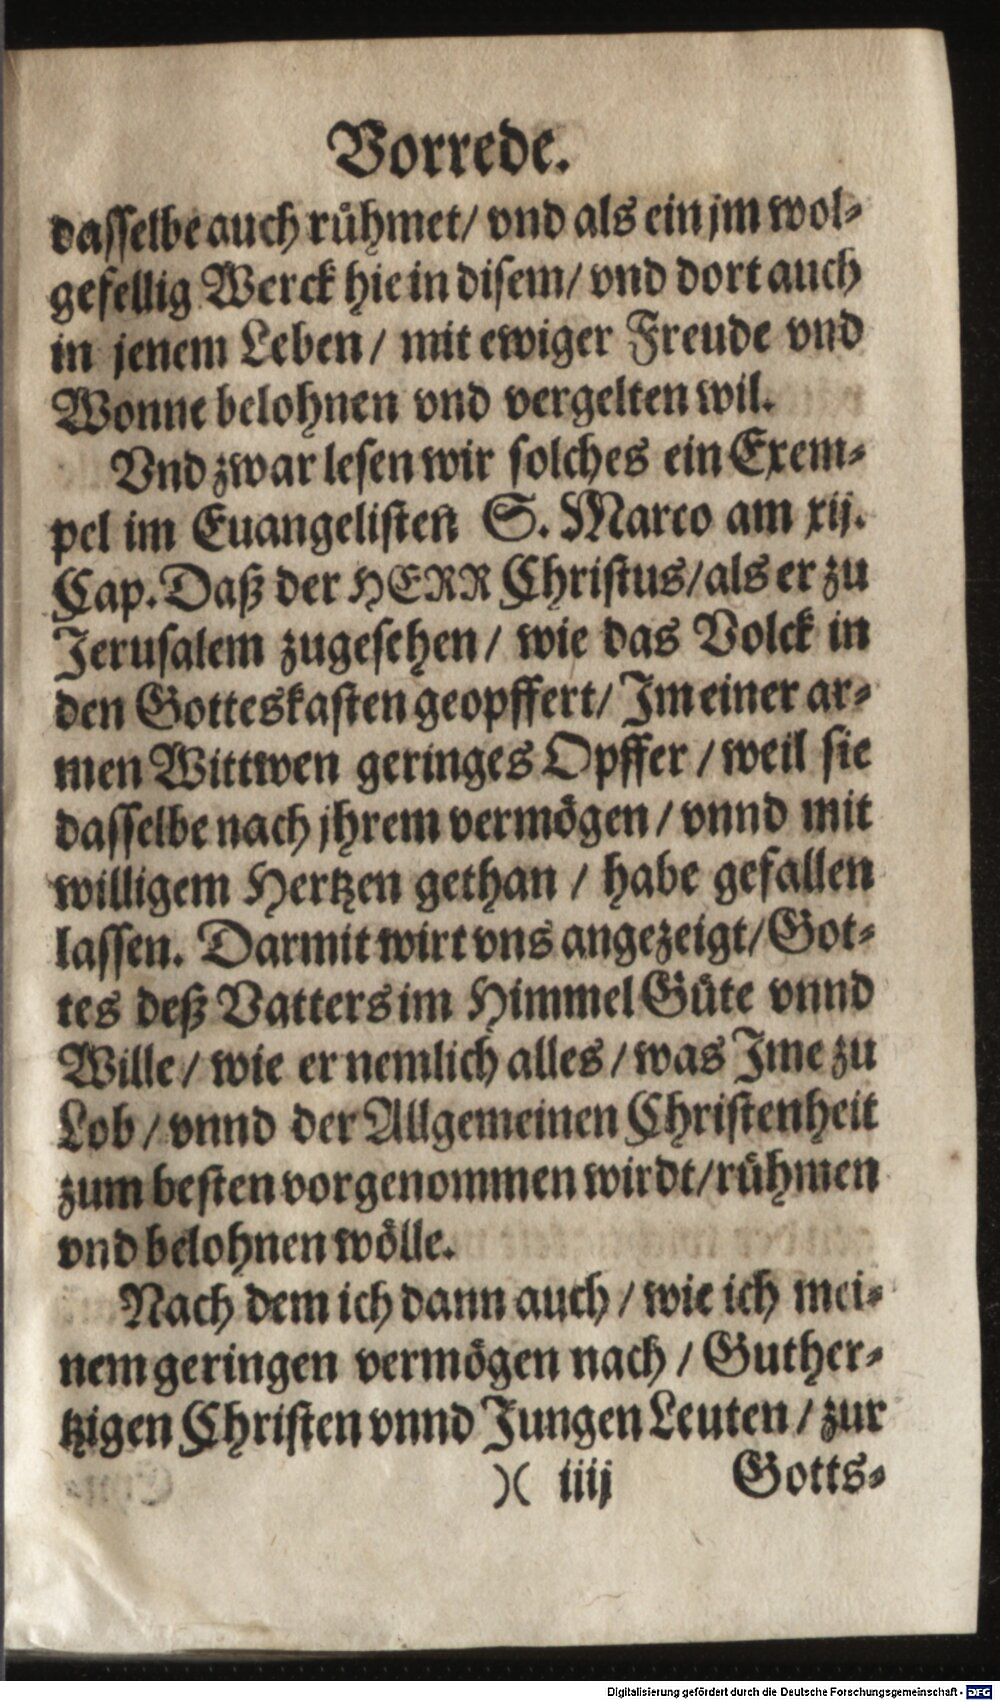 Vorrede.
dasselbe auch rühmet/ vnd als ein jm wol-
gefellig Werck hie in disem/ vnd dort auch
in jenem Leben/ mit ewiger Freude vnd
Wonne belohnen vnd vergelten wil.
Vnd zwar lesen wir solches ein Exem-
pel im Euangelisten S. Marco am xij.
Cap. Daß der HERR Christus/ als er zu
Jerusalem zugesehen/ wie das Volck in
den Gotteskasten geopffert/ Jm einer ar-
men Wittwen geringes Opffer/ weil sie
dasselbe nach jhrem vermögen/ vnnd mit
willigem Hertzen gethan/ habe gefallen
lassen. Darmit wirt vns angezeigt/ Got-
tes deß Vatters im Himmel Güte vnnd
Wille/ wie er nemlich alles/ was Jme zu
Lob/ vnnd der Allgemeinen Christenheit
zum besten vorgenommen wirdt/ rühmen
vnd belohnen wölle.
Nach dem ich dann auch/ wie ich mei-
nem geringen vermögen nach/ Guther-
tzigen Christen vnnd Jungen Leuten/ zur
)( iiij Gotts-
Digitalisierung gefördert durch die Deutsche Forschungsgemeinschaft - DFG